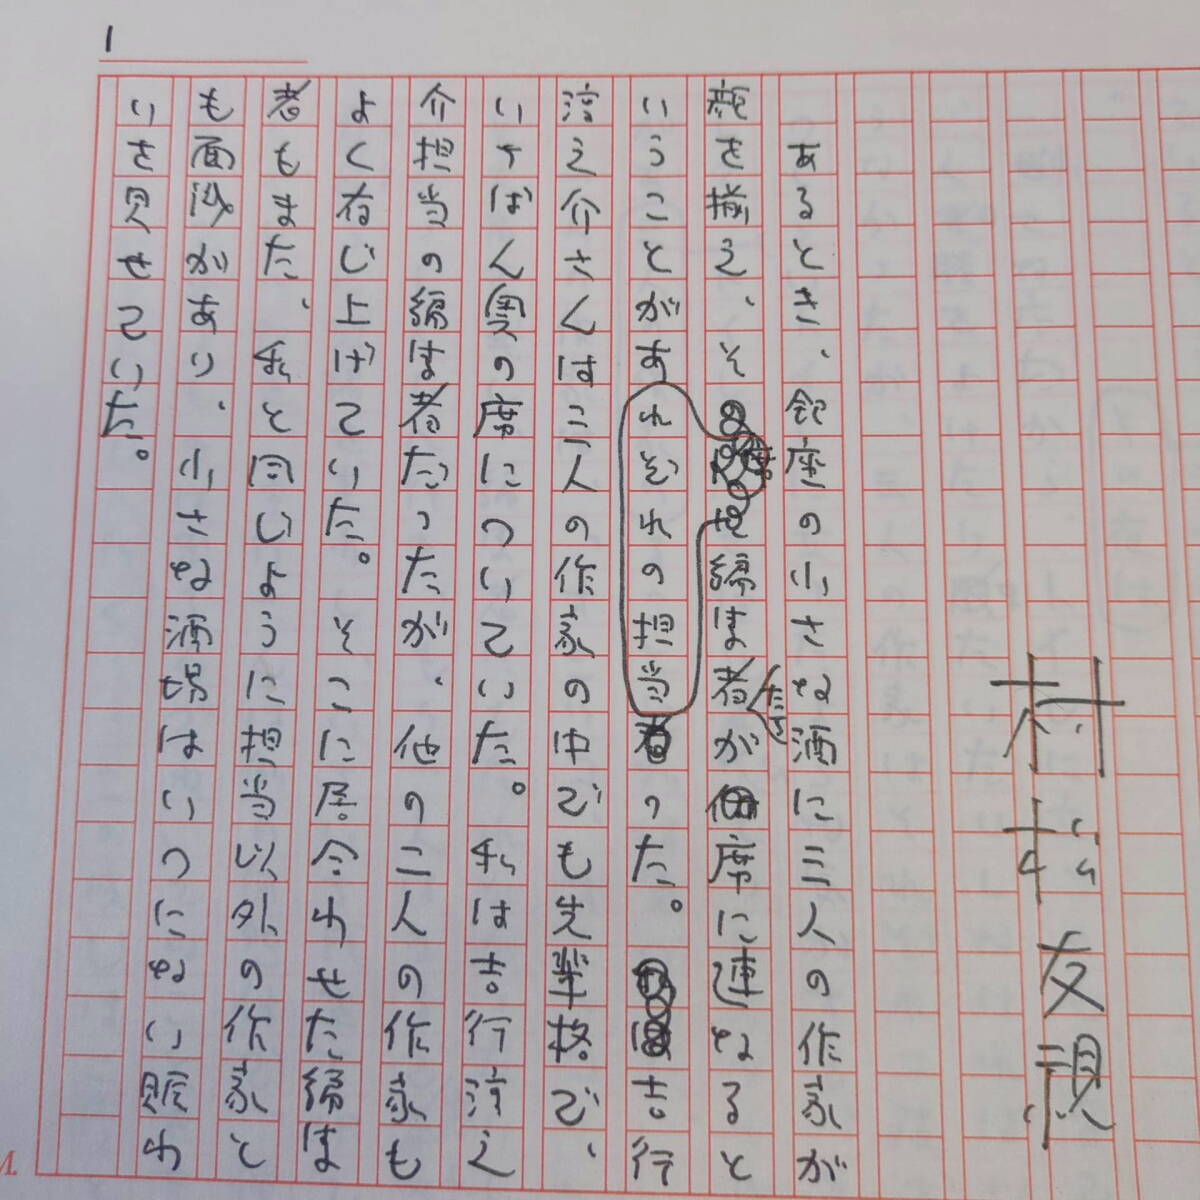 1
村松友視
あるとき、銀座の小さな酒に三人の作家が
顔を揃え、それぞれの担当編集者たちが席に連なると
いうことがあった。吉行
淳之介さんは三人の作家の中でも先輩格で、
いちばん奥の席についていた。私は吉行淳之
介担当の編集者だったが、他の二人の作家も
よく存じ上げていた。そこに居合わせた編集
者もまた、私と同じように担当以外の作家と
も面識があり、小さな酒場はいつにない賑わ
いを見せていた。